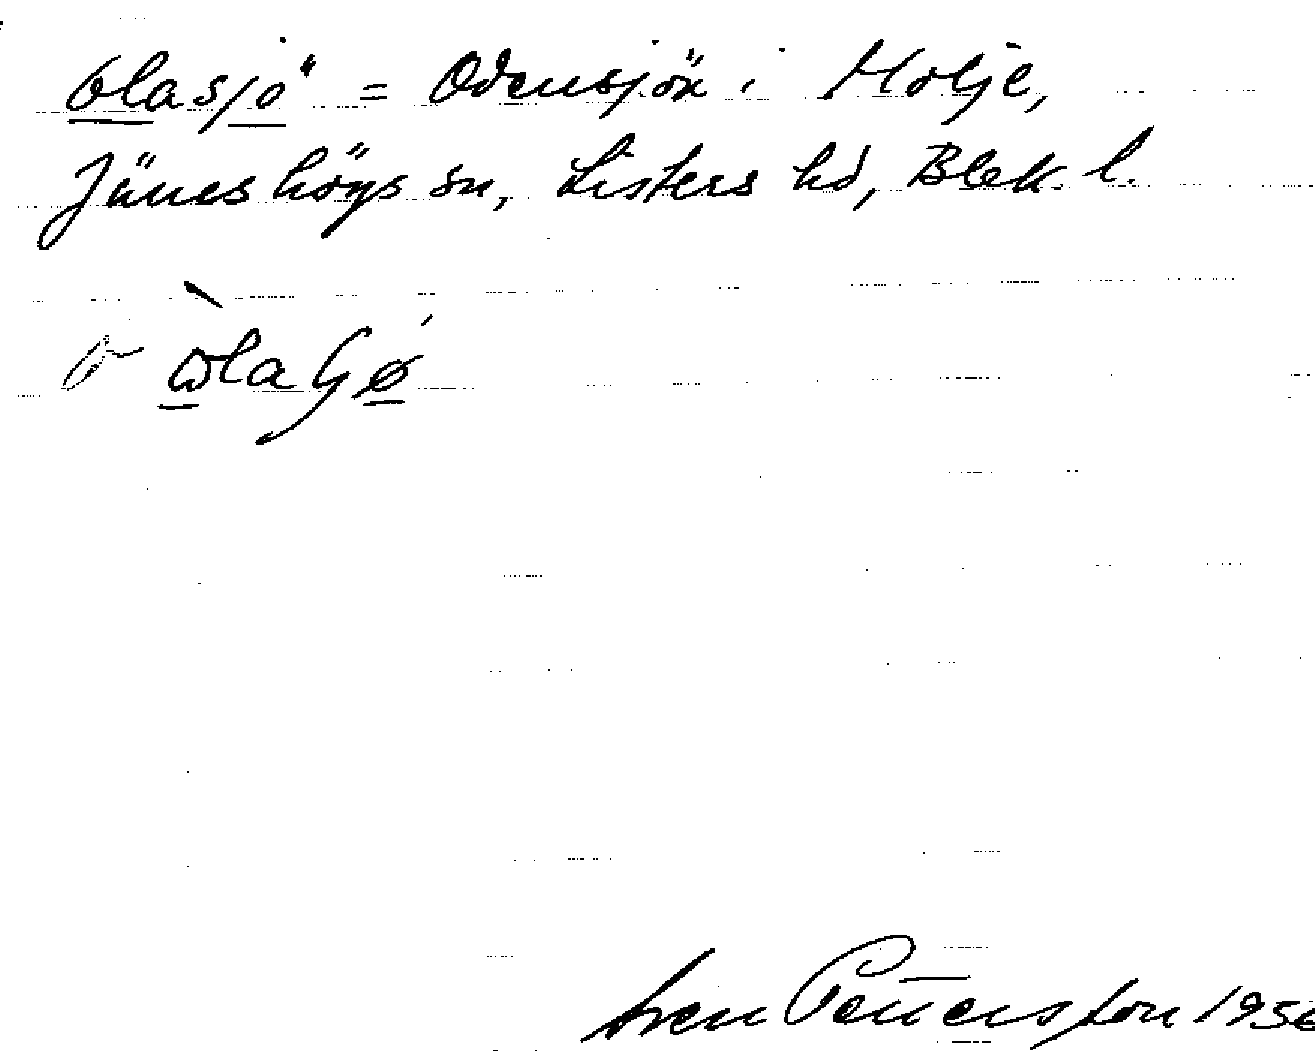 Olasjö = Odensjön i Holje,
Jämshögs sn, Listers hd, Blek. l.
Sven Pettersson 195